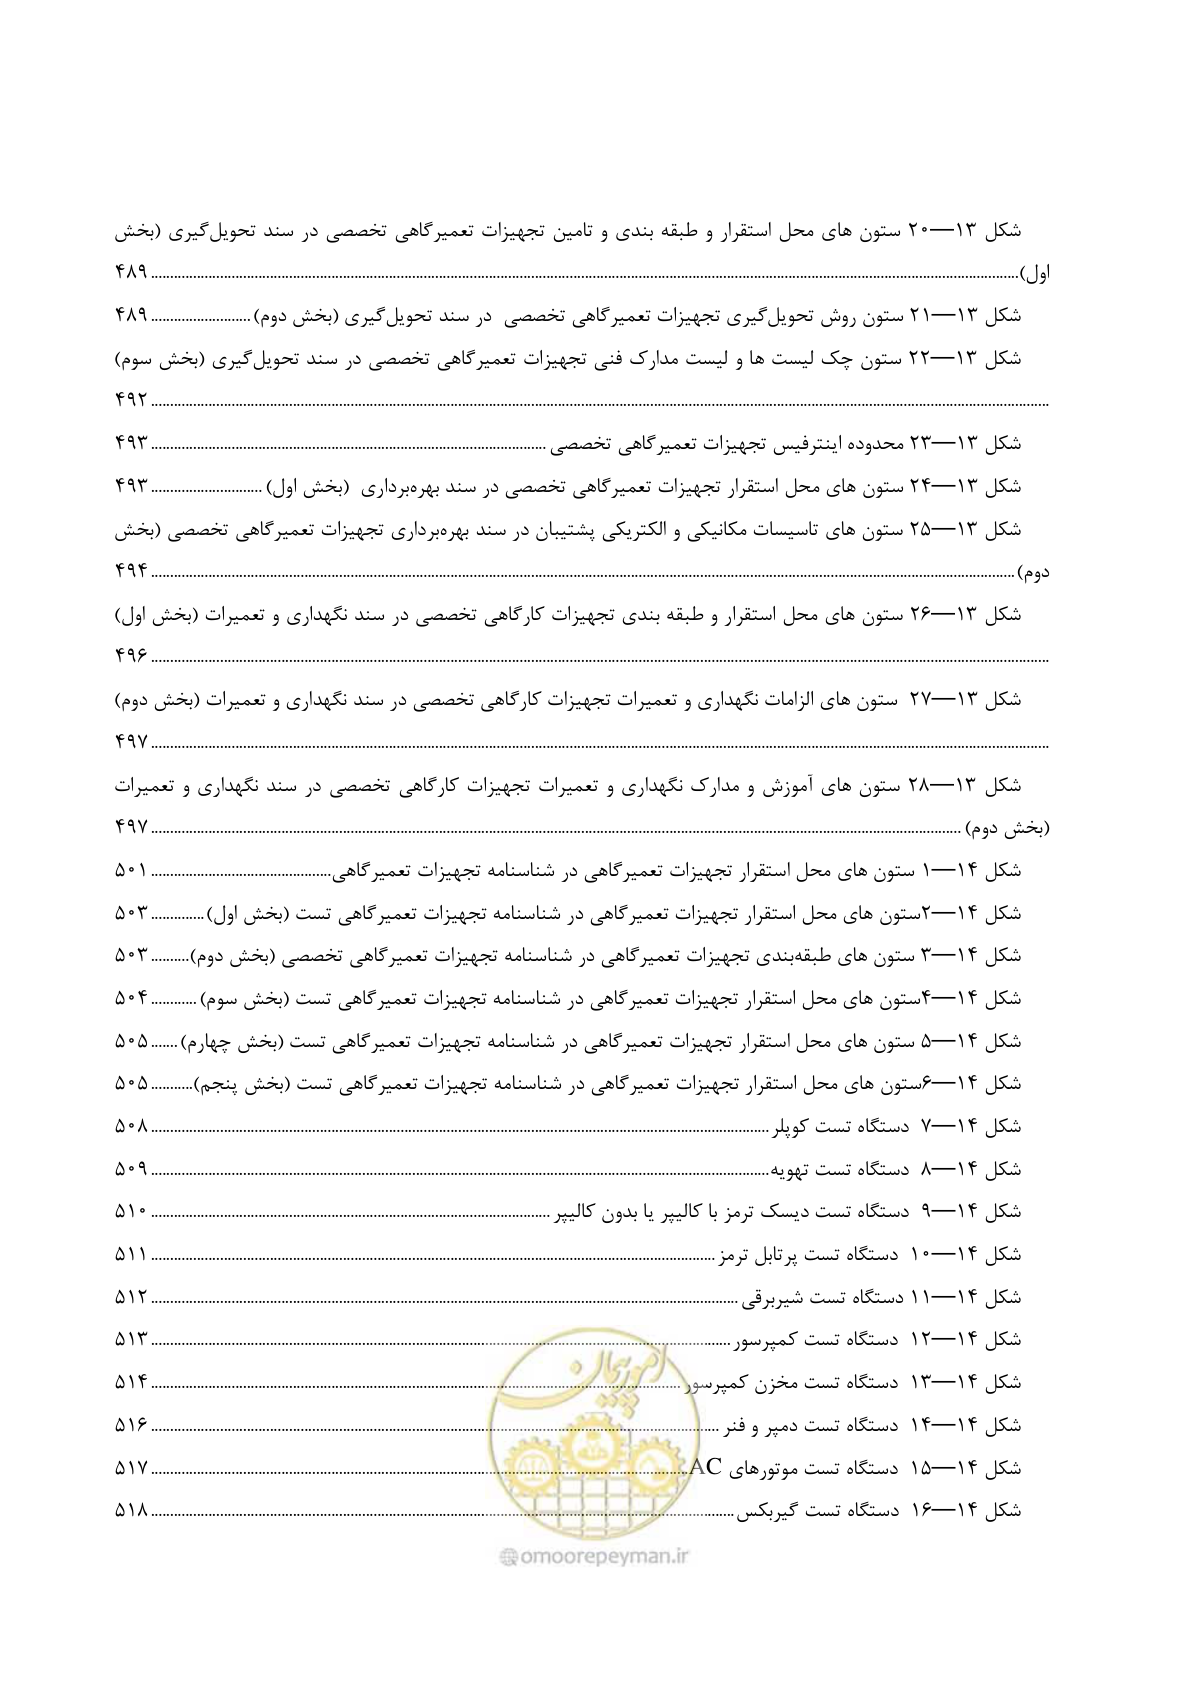 شکل ۱۳—۲۰ ستون های محل استقرار و طبقه بندی و تامین تجهیزات تعمیرگاهی تخصصی در سند تحویل‌گیری (بخش
اول) ........ ۴۸۹
شکل ۱۳—۲۱ ستون روش تحویل‌گیری تجهیزات تعمیرگاهی تخصصی در سند تحویل‌گیری (بخش دوم) ........ ۴۸۹
شکل ۱۳—۲۲ ستون چک لیست ها و لیست مدارک فنی تجهیزات تعمیرگاهی تخصصی در سند تحویل‌گیری (بخش سوم)
........ ۴۹۲
شکل ۱۳—۲۳ محدوده اینترفیس تجهیزات تعمیرگاهی تخصصی ........ ۴۹۳
شکل ۱۳—۲۴ ستون های محل استقرار تجهیزات تعمیرگاهی تخصصی در سند بهره‌برداری (بخش اول) ........ ۴۹۳
شکل ۱۳—۲۵ ستون های تاسیسات مکانیکی و الکتریکی پشتیبان در سند بهره‌برداری تجهیزات تعمیرگاهی تخصصی (بخش
دوم) ........ ۴۹۴
شکل ۱۳—۲۶ ستون های محل استقرار و طبقه بندی تجهیزات کارگاهی تخصصی در سند نگهداری و تعمیرات (بخش اول)
........ ۴۹۶
شکل ۱۳—۲۷ ستون های الزامات نگهداری و تعمیرات تجهیزات کارگاهی تخصصی در سند نگهداری و تعمیرات (بخش دوم)
........ ۴۹۷
شکل ۱۳—۲۸ ستون های آموزش و مدارک نگهداری و تعمیرات تجهیزات کارگاهی تخصصی در سند نگهداری و تعمیرات
(بخش دوم) ........ ۴۹۷
شکل ۱۴—۱ ستون های محل استقرار تجهیزات تعمیرگاهی در شناسنامه تجهیزات تعمیرگاهی ........ ۵۰۱
شکل ۱۴—۲ستون های محل استقرار تجهیزات تعمیرگاهی در شناسنامه تجهیزات تعمیرگاهی تست (بخش اول) ........ ۵۰۳
شکل ۱۴—۳ ستون های طبقه‌بندی تجهیزات تعمیرگاهی در شناسنامه تجهیزات تعمیرگاهی تخصصی (بخش دوم) ........ ۵۰۳
شکل ۱۴—۴ستون های محل استقرار تجهیزات تعمیرگاهی در شناسنامه تجهیزات تعمیرگاهی تست (بخش سوم) ........ ۵۰۴
شکل ۱۴—۵ ستون های محل استقرار تجهیزات تعمیرگاهی در شناسنامه تجهیزات تعمیرگاهی تست (بخش چهارم) ........ ۵۰۵
شکل ۱۴—۶ستون های محل استقرار تجهیزات تعمیرگاهی در شناسنامه تجهیزات تعمیرگاهی تست (بخش پنجم) ........ ۵۰۵
شکل ۱۴—۷ دستگاه تست کوپلر ........ ۵۰۸
شکل ۱۴—۸ دستگاه تست تهویه ........ ۵۰۹
شکل ۱۴—۹ دستگاه تست دیسک ترمز با کالیپر یا بدون کالیپر ........ ۵۱۰
شکل ۱۴—۱۰ دستگاه تست پرتابل ترمز ........ ۵۱۱
شکل ۱۴—۱۱ دستگاه تست شیربرقی ........ ۵۱۲
شکل ۱۴—۱۲ دستگاه تست کمپرسور ........ ۵۱۳
شکل ۱۴—۱۳ دستگاه تست مخزن کمپرسور ........ ۵۱۴
شکل ۱۴—۱۴ دستگاه تست دمپر و فنر ........ ۵۱۶
شکل ۱۴—۱۵ دستگاه تست موتورهای AC ........ ۵۱۷
شکل ۱۴—۱۶ دستگاه تست گیربکس ........ ۵۱۸
امور پیمان
@omoorepeyman.ir